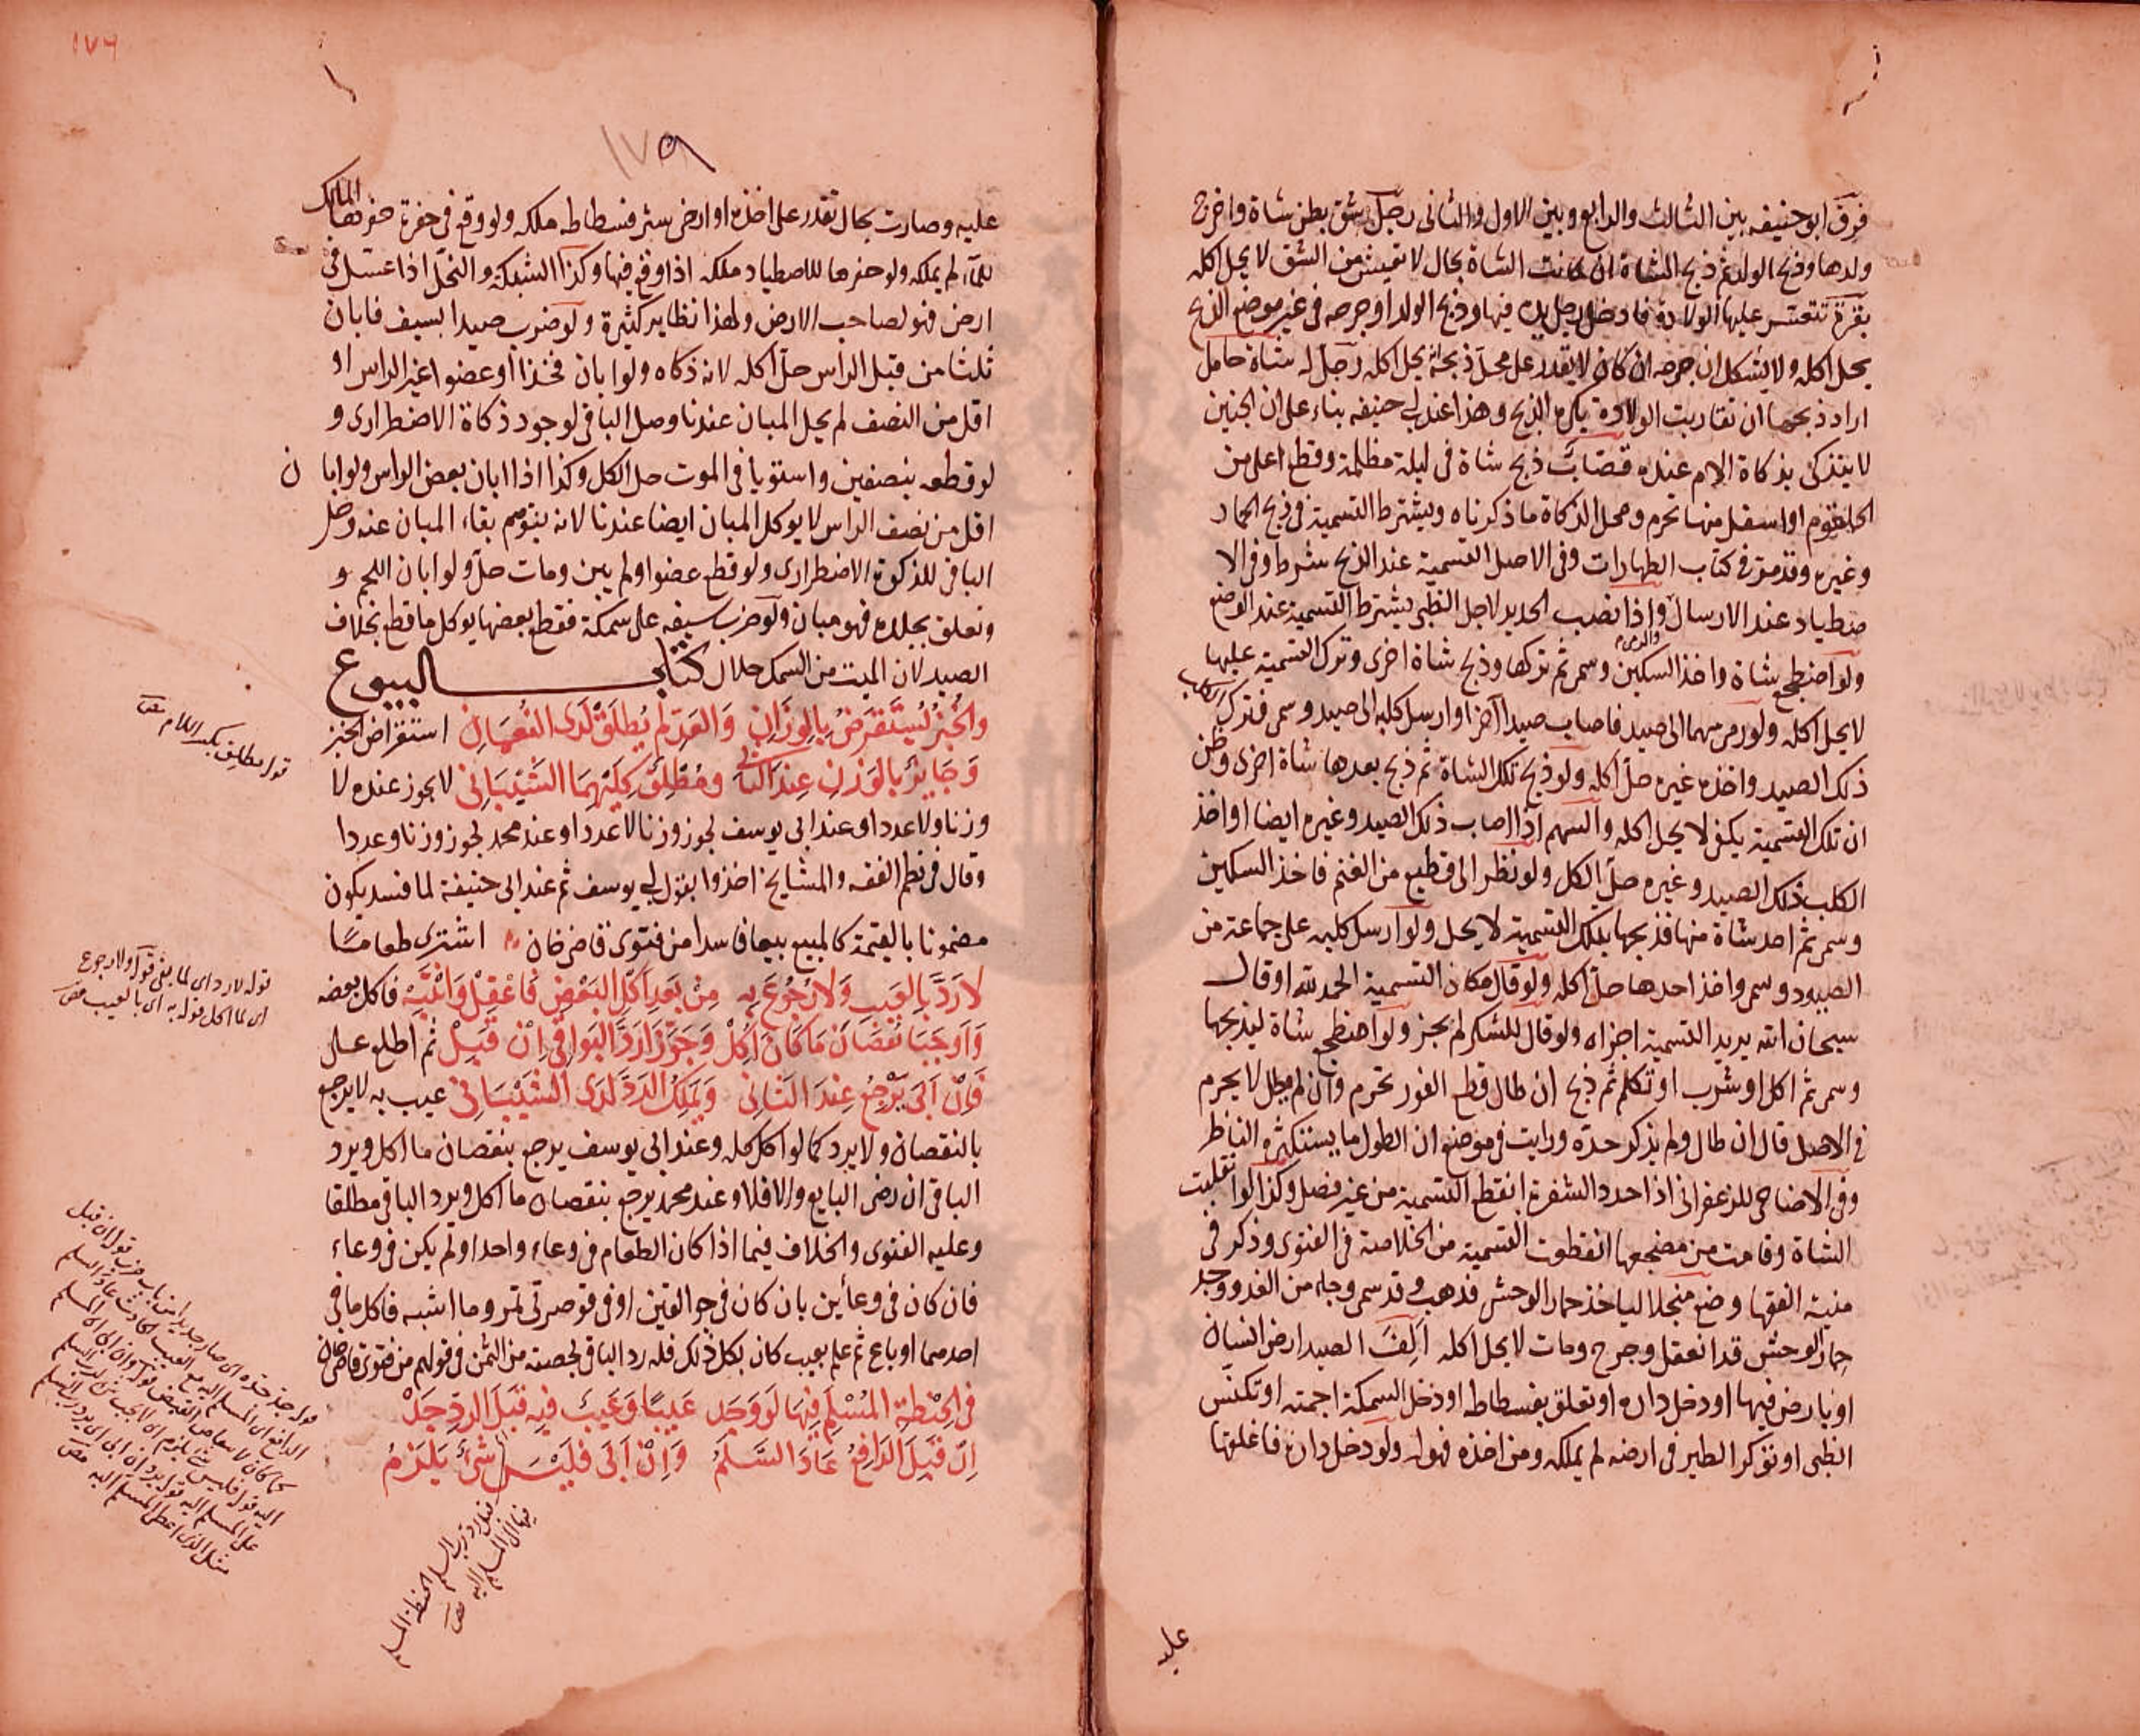 فرق ابو حنيفه بين الثالث والرابع وبين الاول والثانى رجل شق بطن شاة واخرج
ولدها وذبح الولد ثم ذبح الشاة ان كانت الشاة بحال لا تعيش من الشق لا يحل اكله
بقرة تتعسر عليها الولادة فادخل رجل يده فيها وذبح الولد او جرحه فى غير موضع الذبح
يحل اكله ولا يشكل ان جرحه ان كان لا يقدر على محل ذبحه انه يحل اكله رجل له شاة حامل
اراد ذبحها ان تقاربت الولادة يكره الذبح وهذا عند ابى حنيفه بناء على ان الجنين
لا يتذكى بذكاة الام عنده قصاب ذبح شاة فى ليلة مظلمة وقطع اعلى من
الحلقوم او اسفل منها تحرم ومحل الذكاة ما ذكرناه ويشترط التسمية فى ذبح الحمار
وغيره وقد مر فى كتاب الطهارات وفى الاصل التسمية عند الذبح شرط وفى الا
صطياد عند الارسال والرمى واذا نصب الحديد لاجل الظبى يشترط التسمية عند الوضع
ولو اضطجع شاة واخذ السكين وسمى ثم تركها وذبح شاة اخرى وترك التسمية عليها
لا يحل اكله ولو رمى سهما الى صيد فاصاب صيدا آخر او ارسل كلبه الى صيد وسمى فترك الكلب
ذلك الصيد واخذه غيره حل اكله ولو ذبح تلك الشاة ثم ذبح بعدها شاة اخرى وظن
ان تلك التسمية يكفى لا يحل اكله والسهم اذا اصاب ذلك الصيد وغيره ايضا او اخذ
الكلب ذلك الصيد وغيره حل الكل ولو نظر الى قطيع من الغنم فاخذ السكين
وسمى ثم اخذ شاة منها فذبحها بتلك التسمية لا يحل ولو ارسل كلبه على جماعة من
الصيود وسمى واخذ احدها حل اكله ولو قال مكان التسمية الحمد لله او قال
سبحان الله يريد التسمية اجزاه ولو قال للشكر لم يجز ولو اضطجع شاة ليذبحها
وسمى ثم اكل او شرب او تكلم ثم ذبح ان طال قطع الفور تحرم وان لم يطل لا يحرم
فى الاصل قال ان طال ولم يذكر حده ورايت فى موضع ان الطول ما يستكثره الناظر
وفى الاضاحى للزعفرانى اذا حدد الشفرة انقطع التسمية من غير فصل وكذا لو انقلبت
الشاة وقامت من مضجعها انقطعت التسمية من الخلاصة فى الفتوى وذكر فى
منية الفقها وضع منجلا لياخذ حمار الوحش فذهب وقد سمى وجاء من الغد ووجد
حمار الوحش قد انعقل وجرح ومات لا يحل اكله الف الصيد ارض انسان
او باض فيها او دخل داره او تعلق بفسطاط او دخل السمكة اجمته او تكنس
الظبى او توكر الطير فى ارضه لم يملكه ومن اخذه فهو له ولو دخل داره فاغلقها
عليه
١٧٦
١٧٩
عليه وصارت بحال تقدر على اخذه او ارض ستر فسطاطه ملكه ولو وقع فى حفرة حفرها المالك
للماء لم يملكه ولو حفرها للاصطياد ملكه اذا وقع فيها وكذا الشبكة والنحل اذا عسل فى
ارض فهو لصاحب الارض ولهذا نظاير كثيرة ولو ضرب صيدا بسيف فابان
ثلثا من قبل الراس حل اكله لانه ذكاه ولو ابان فخذا او عضوا غير الراس او
اقل من النصف لم يحل المبان عندنا وحل الباقى لوجود ذكاة الاضطرارى و
لو قطعه بنصفين واستويا فى الموت حل الكل وكذا اذا ابان بعض الراس ولو ابان
اقل من نصف الراس لا يوكل المبان ايضا عندنا لانه يتوهم بقاء المبان عنه وحل
الباقى للذكوة الاضطرارى ولو قطع عضوا ولم يبن ومات حل ولو ابان اللحم و
وتعلق بجلده فهو مبان ولو ضرب بسيفه على سمكة فقطع بعضها يوكل ما قطع بخلاف
الصيد لان الميت من السمك حلال كتاب البيوع
والخبز ليستقرض بالوزان والعد لم يطلق لدى النعمان استقراض الخبز
وجايز بالوزن عند الثانى ومطلق كليهما الشيبانى لا يجوز عنده لا
وزنا ولا عددا وعند ابى يوسف يجوز وزنا لا عددا وعند محمد يجوز وزنا وعددا
وقال فى نظم الفقه والمشايخ اخذوا بقول ابى يوسف ثم عند ابى حنيفة لما فسد يكون
مضمونا بالقيمة كالمبيع بيعا فاسدا من فتوى قاضى خان اشترى طعاما
لا رد بالعيب ولا رجوع به من بعد اكل البعض فاعقل وانتبه فاكل بعضه
واوجبا نقصان ما كان اكل وجوزا رد البواقى ان قبل ثم اطلع على
فان ابى يرجع عند الثانى ويملك الرد لدى الشيبانى عيب به لا يرجع
بالنقصان ولا يرد كما لو اكل كله وعند ابى يوسف يرجع بنقصان ما اكل ويرد
الباقى ان رضى البايع والا فلا وعند محمد يرجع بنقصان ما اكل ويرد الباقى مطلقا
وعليه الفتوى والخلاف فيما اذا كان الطعام فى وعاء واحد او لم يكن فى وعاء
فان كان فى وعائين بان كان فى جوالقين او فى قوصرتى تمر وما اشبه فاكل ما فى
احدهما او باع ثم علم بعيب كان بكل ذلك فله رد الباقى بحصته من الثمن فى قولهم من فتوى قاضى خان
فى الحنطة المسلم فيها لو وجد عيبا وعيب فيه قبل الرد جد
ان قبل الدافع عاد السلم وان ابى فليس شئ يلزم
قوله مطلق بكسر اللام
قوله لا رد اى لما بقى قوله ولا رجوع
اى لما اكل قوله به اى بالعيب